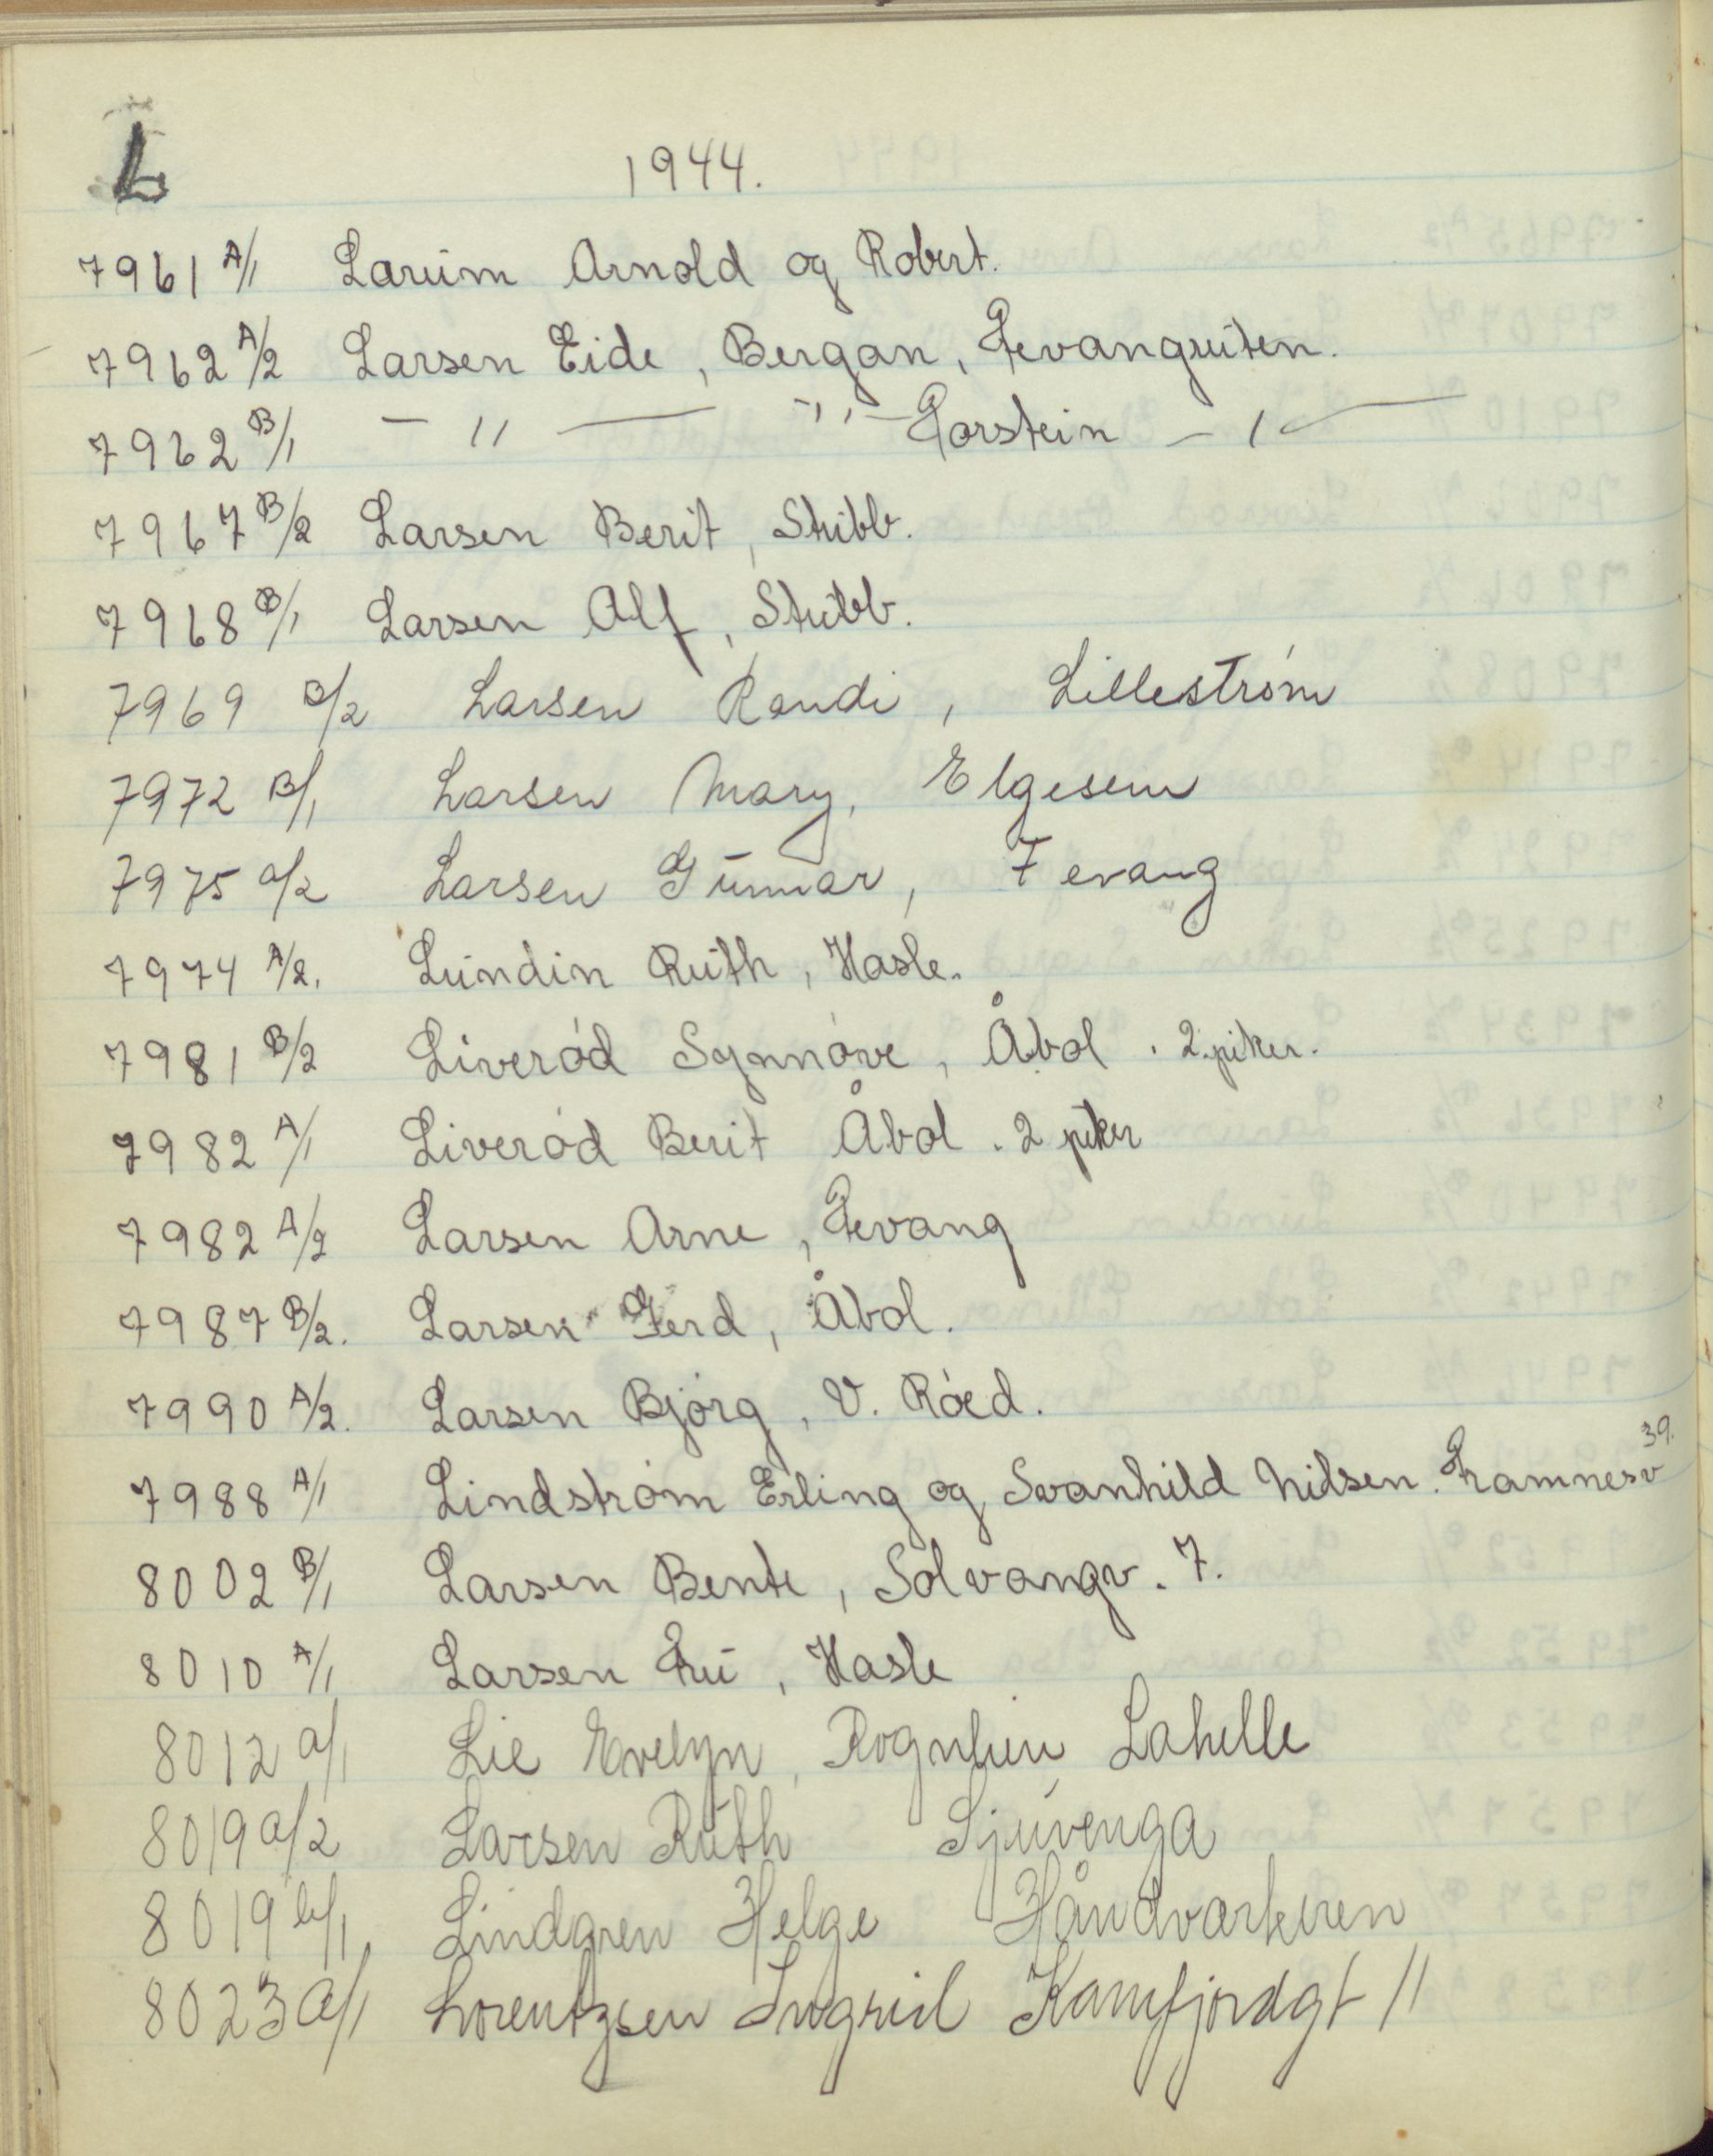 L
1944.
7961 A/1 Larum Arnold og Robert.
7962 A/2 Larsen Eide, Bergan, Fevangruten.
7962 B/1 — " — " — Torstein — " —
7967 B/2 Larsen Berit, Stubb.
7968 B/1 Larsen Alf, Stubb.
7969 B/2 Larsen Randi, Lilleström
7972 B/1 Larsen Mary, Elgesem
7975 a/2 Larsen Gunnar, Fevang
7974 A/2. Lundin Ruth, Hasle.
7981 B/2 Liveród Synnóve, Åbol. 2 piker.
7982 A/1 Liveród Berit Åbol. 2 piker
7982 A/2 Larsen Arne, Fevang
7987 B/2. Larsen Gerd, Åbol.
7990 A/2. Larsen Bjórg, V. Róed.
7988 A/1 Lindstróm Erling og Svanhild Nilsen. Framnesv 39.
8002 B/1 Larsen Bente, Solvangv. 7.
8010 A/1 Larsen Fru, Hasle
8012 a/1 Lie Evelyn, Rognlien Lahelle
8019 a/2 Larsen Ruth Sjuvenga
8019 b/1 Lindgren Helge Håndverkeren
8023 a/1 Lorentzsen Ingrid Kamfjordgt 11